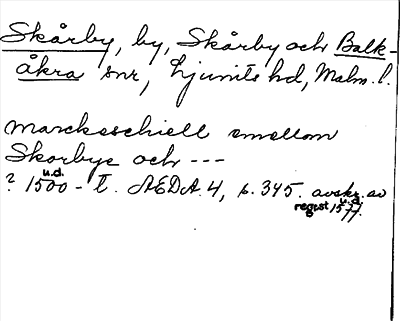 Skårby, by, Skårby och Balk-
åkra snr, Ljunits hd, Malm. l.
marckeschiell emellom
Skorbye och ---
? 1500 - t. u.d. AEDA. 4, p. 345. avskr. av
regist 1577. u.d.